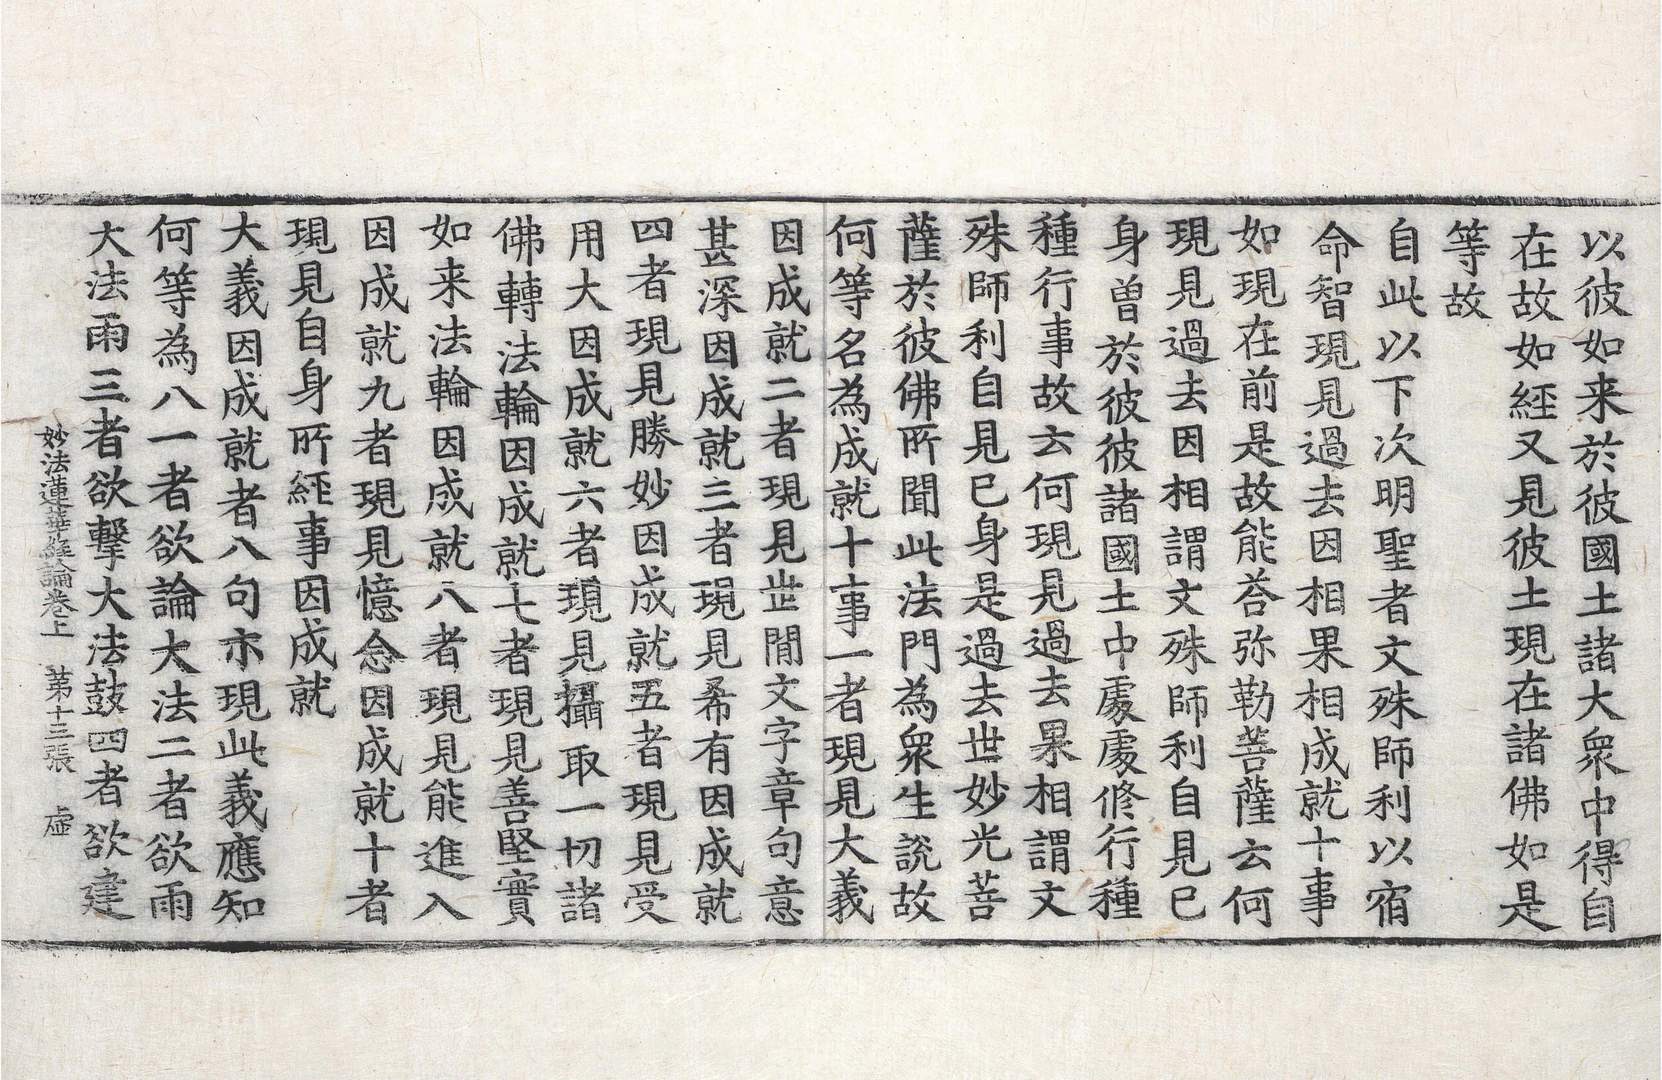 以彼如来於彼國土諸大衆中得自
在故如經又見彼土現在諸佛如是
等故
自此以下次明聖者文殊師利以宿
命智現見過去因相果相成就十事
如現在前是故能荅弥勒菩薩云何
現見過去因相謂文殊師利自見已
身曾於彼彼諸國土中處處修行種
種行事故云何現見過去果相謂文
殊師利自見已身是過去世妙光菩
薩於彼佛所聞此法門為衆生說故
何等名為成就十事一者現見大義
因成就二者現見世間文字章句意
甚深因成就三者現見希有因成就
四者現見勝妙因成就五者現見受
用大因成就六者現見攝取一切諸
佛轉法輪因成就七者現見善堅實
如来法輪因成就八者現見能進入
因成就九者現見憶念因成就十者
現見自身所經事因成就
大義因成就者八句亦現此義應知
何等為八一者欲論大法二者欲雨
大法雨三者欲擊大法鼓四者欲建
妙法蓮華經論卷上 第十三張 虛